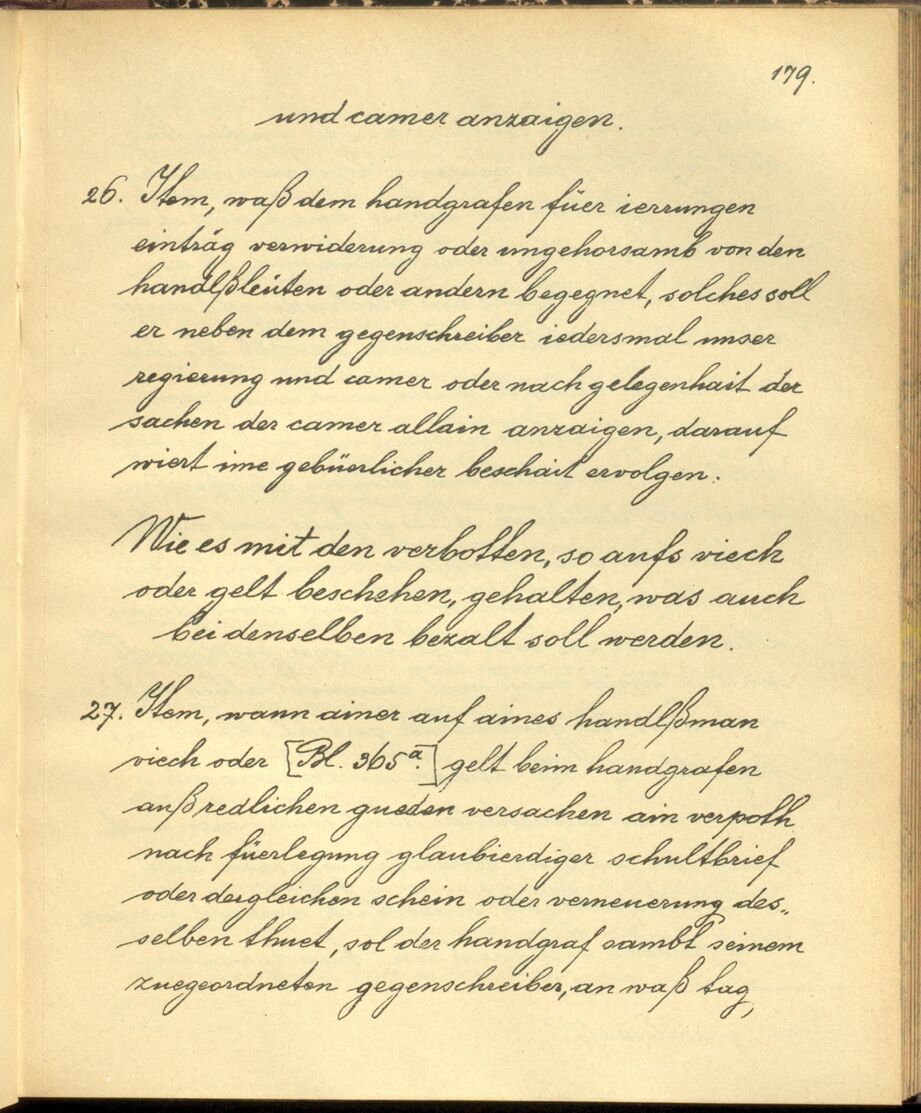 179.
und camer anzaigen.
26. Item, waß dem handgrafen füer ierrungen
einträg verwiderung oder ungehorsamb von den
handlßleüten oder andern begegnet, solches soll
er neben dem gegenschreiber iedersmal unser
regierung und camer oder nach gelegenhait der
sachen der camer allain anzaigen, darauf
wiert ime gebüerlicher beschait ervolgen.
Wie es mit den verbotten, so aufs viech
oder gelt beschehen, gehalten, was auch
bei denselben bezalt soll werden.
27. Item, wann ainer auf aines handlßman
viech oder [Bl. 365a.] gelt beim handgrafen
auß redlichen gueden versachen ain verpoth
nach füerlegung glaubierdiger schultbrief
oder dergleichen schein oder verneuerung des„
selben thuet, sol der handgraf sambt seinem
zuegeordneten gegenschreiber, an waß tag,